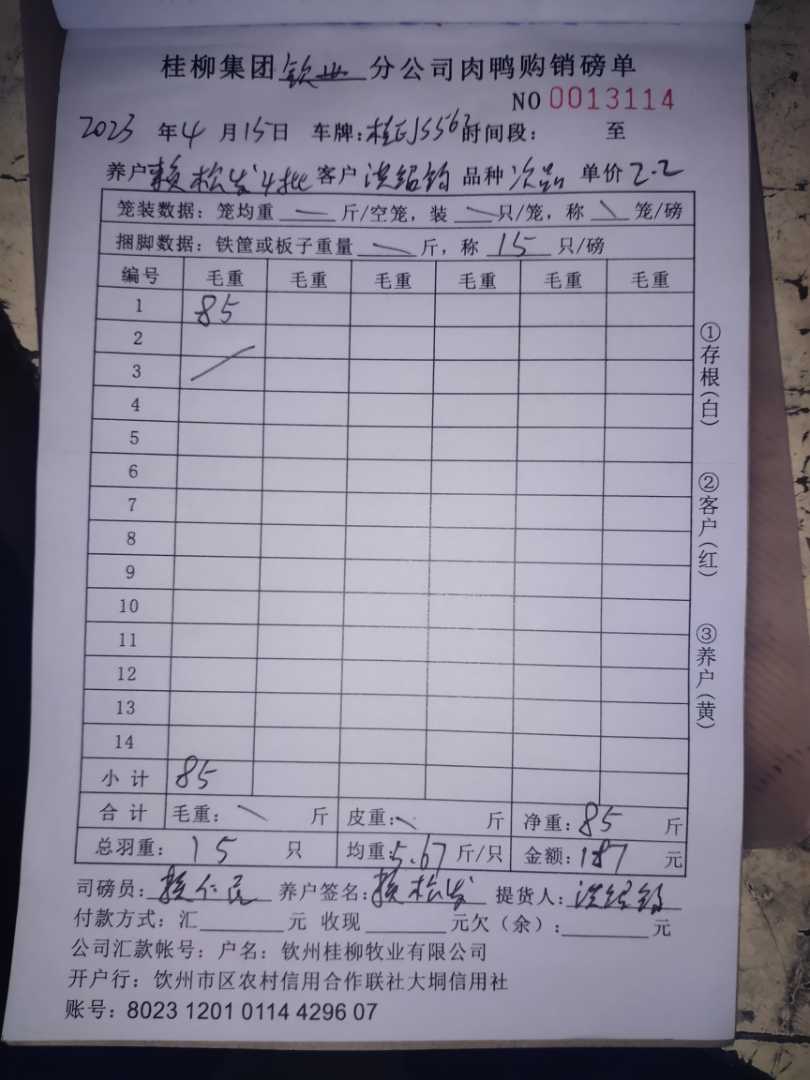 桂柳集团钦业分公司肉鸭购销磅单
NO 0013114
2023 年 4 月 15 日 车牌:桂 时间段: 至
养户 赖松发 4批 客户 洪绍钧 品种 次品 单价 2.2
笼装数据: 笼均重 斤/空笼, 装 只/笼, 称 笼/磅
捆脚数据: 铁筐或板子重量 斤, 称 15 只/磅
编号 毛重 毛重 毛重 毛重 毛重 毛重
1 85
2
3
4
5
6
7
8
9
10
11
12
13
14
小计 85
合计 毛重: 斤 皮重: 斤 净重: 85 斤
总羽重: 15 只 均重: 5.67 斤/只 金额: 187 元
司磅员: 赖仁民 养户签名: 赖松发 提货人: 洪绍钧
付款方式: 汇 元 收现 元欠(余): 元
公司汇款帐号: 户名: 钦州桂柳牧业有限公司
开户行: 钦州市区农村信用合作联社大垌信用社
账号: 8023 1201 0114 4296 07
①存根(白)
②客户(红)
③养户(黄)